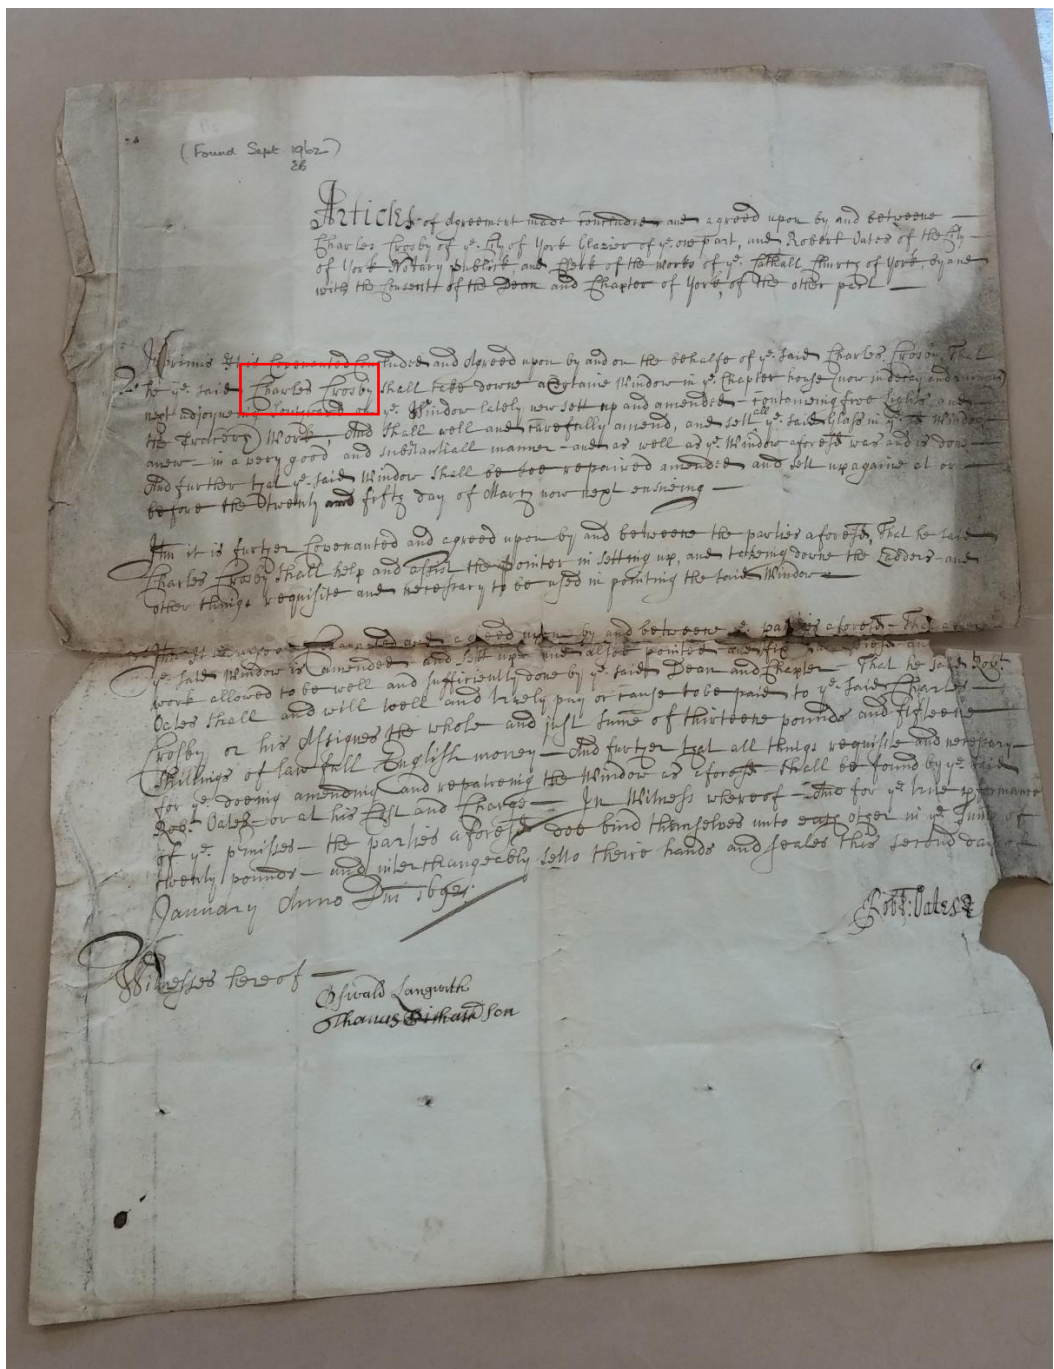 (Found Sept 1962)
EB
Articles of Agreement made concluded and agreed upon by and betweene
Charles Crosby of ye. City of York Glazier of ye. one part, and Robert Oates of the City
of York Notary publick, and Clerk of the works of ye. Cathall Church of York, by and
with the Consentt of the Dean and Chapter of York, of the other part
Inprimis It is Covenanted Concluded and Agreed upon by and on the behalfe of ye. said Charles Crosby, That
he ye. said Charles Crosby shall take downe a Certaine Window in ye. Chapter house (now in decay and
next adjoyneing of ye. Window lately new sett up and amended - Containeing five lights and
the Work, And shall well and carefully amend, and sett all ye. said Glass in ye. Window
anew - in a very good and substantiall manner - and as well as ye. Window aforesd. was and is done
And further that ye. said Window shall be repaired amended and sett up againe at or
before the twenty and fifth day of March now next ensueing
Itm it is further Covenanted and agreed upon by and betweene the parties aforesd. That he said
Charles Crosby shall help and assist the pointer in setting up, and takeing downe the Ladders and
other things requisite and necessary to be used in pointing the said Window
Itm it is Covenanted and agreed upon by and betweene ye. parties aforesd. -
ye. said Window is amended - and sett up and
work allowed to be well and sufficiently done by ye. said Dean and Chapter - That he said Robt.
Oates shall and will well and truely pay or cause to be paid to ye. said Charles
Crosby or his Assignes the whole and just sume of thirteene pounds and fifteene
Shillings of lawfull English money - And further that all things requisite and necessary
for ye. doeing amending and repaireing the Window as aforesd. shall be found by ye. said
Robt. Oates or at his Cost and Charge - In Witness whereof - And for ye. true pformance
of ye. pmisses - the parties aforesd. doe bind themselves unto each other in ye. sume of
twenty pounds - and interchangeably sett to theire hands and seales this second day of
January Anno Dni
Robt: Oates
Witnesses hereof
Oswald Langwith
Thomas Richardson